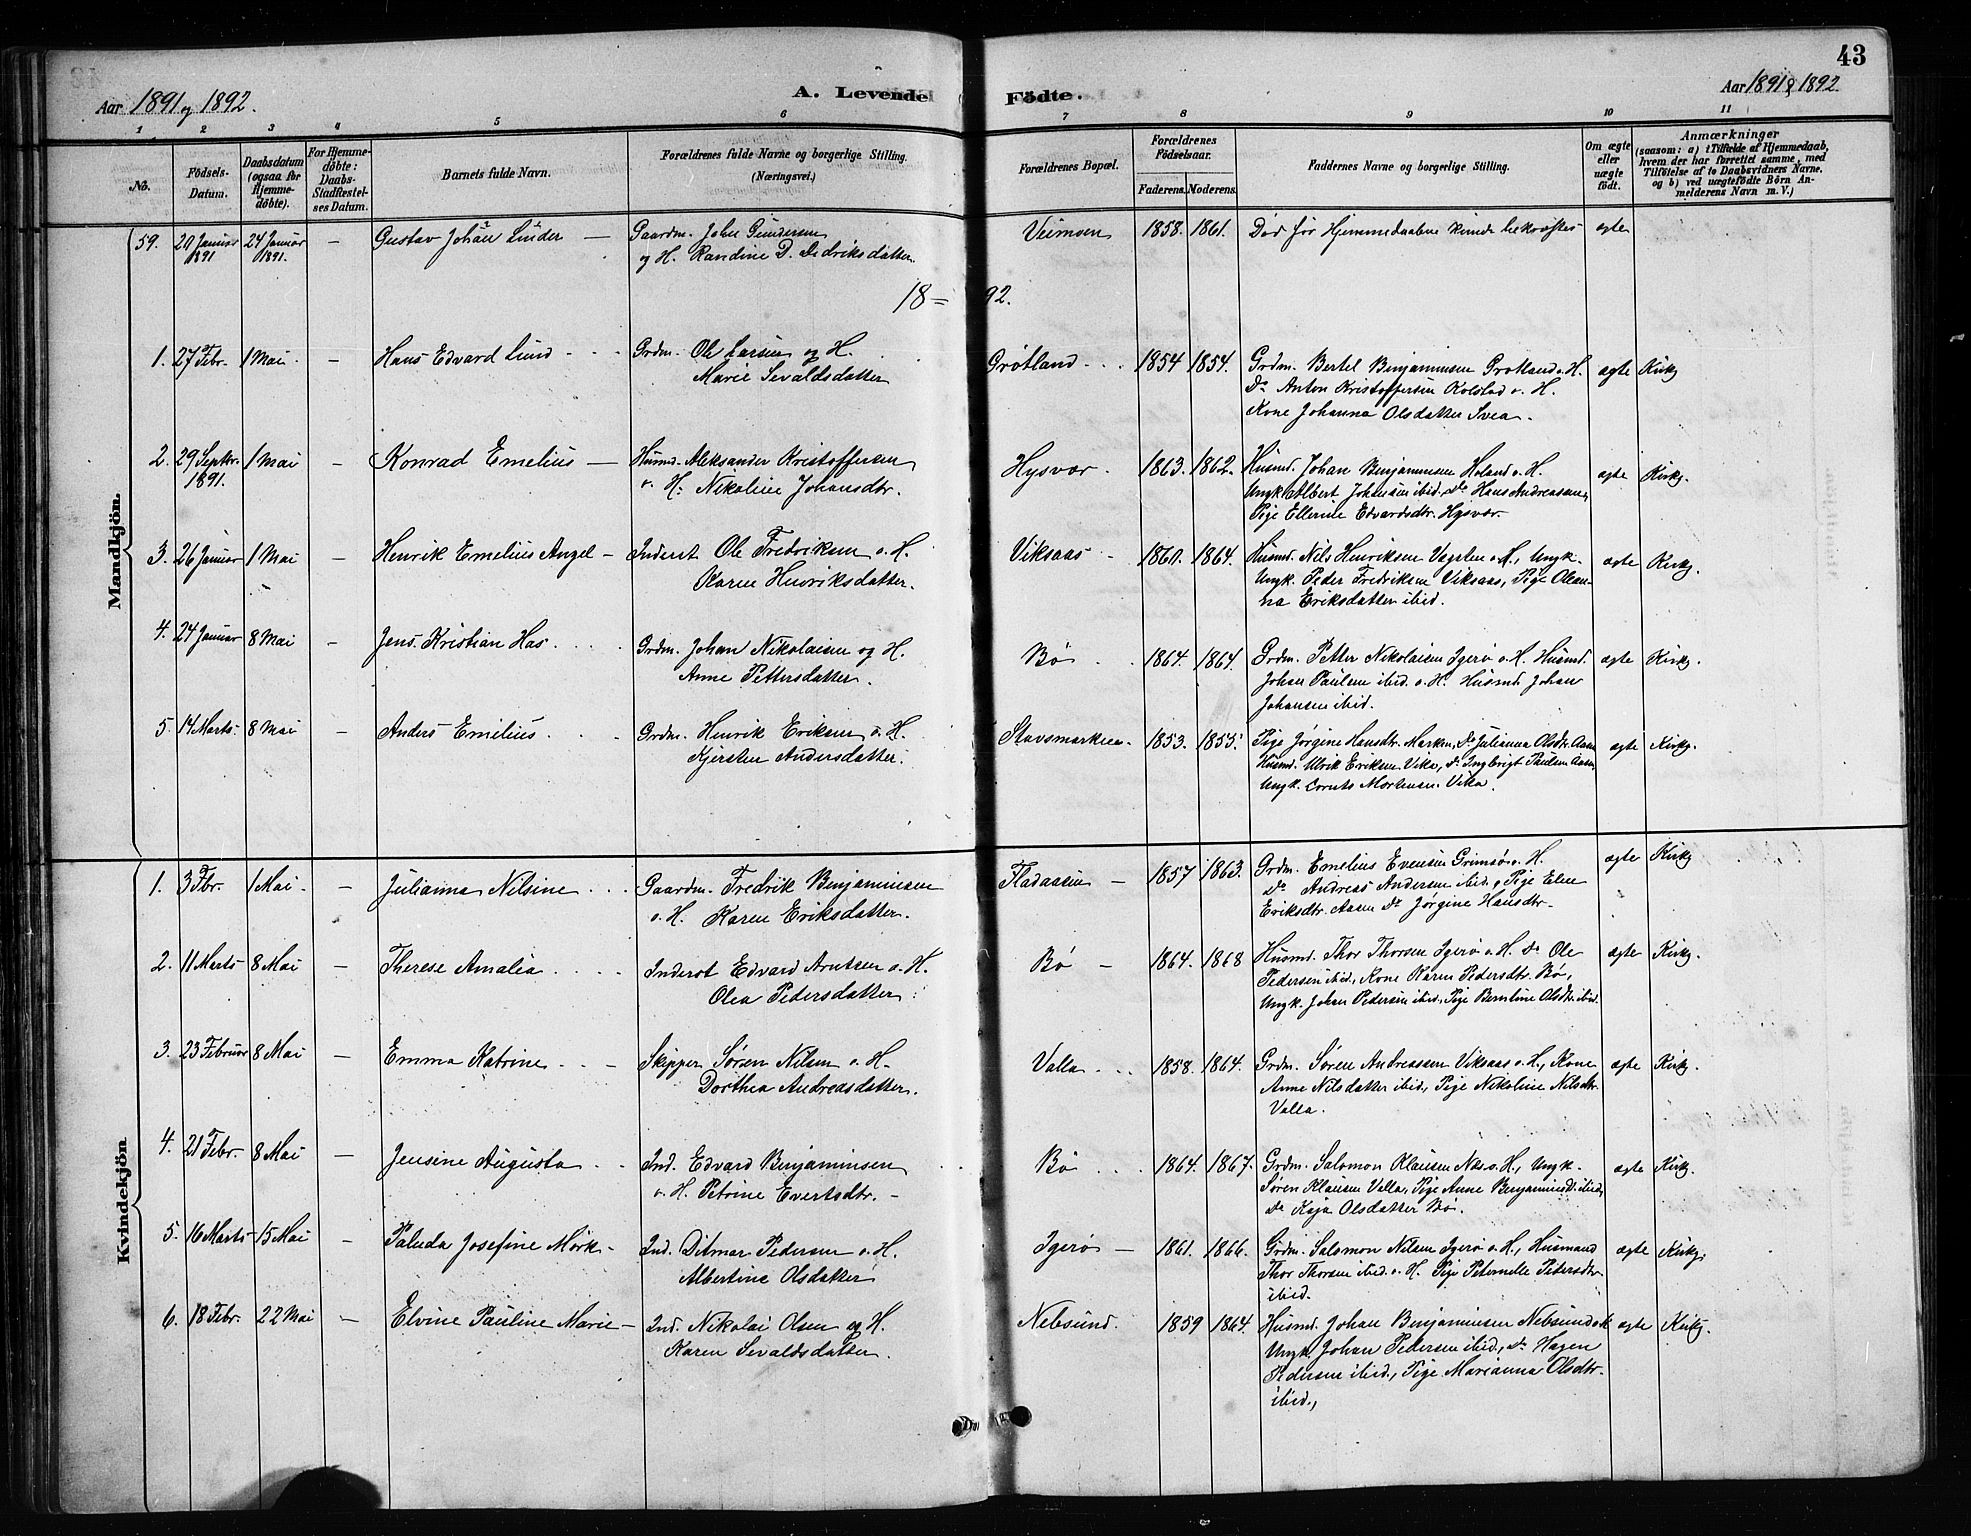 43
Aar 1891 og 1892.
A. Levendefödte.
Aar 1891 & 1892.
1 2 3 4 5 6 7 8 9 10 11
No.
Födsels-Datum.
Daabsdatum (ogsaa for Hjemme-döbte).
For Hjemme-döbte: Daabs-Stadfæstel-ses Datum.
Barnets fulde Navn.
Forældrenes fulde Navne og borgerlige Stilling.
(Næringsvei.)
Forældrenes Bopæl.
Forældrenes Födselsaar.
Faderens. Moderens.
Faddernes Navne og borgerlige Stilling.
Om ægte eller uægte födt.
Anmærkninger
(saasom: a) i Tilfælde af Hjemmedaab,
hvem der har forrettet samme, med
Tilföielse af to Daabsvidners Navne,
og b) ved uægtefödte Börn An-
melderens Navn m. V.)
Mandkjön.
59. 20 Januar 1891 24 Januar 1891. – Gustav Johan Linder – Gaardm. Johan Gundersen
og H. Randine D. Didriksdatter.
Veimoen 1858. 1861. Död för Hjemmedaaben kunde bekræftes ægte
18 = 92.
1. 27 Febr. 1 Mai – Hans Edvard Lund Grdm. Ole Larsen og H.
Marie Sevaldsdatter
Grötland 1854 1854. Grdm. Bertel Benjaminsen Grötland o. H. ægte Kirkj
Do Anton Kristoffersen Kolstad o. H.
Kone Johanna Olsdatter Svea.
2. 29 Septbr. 1891. 1 Mai – Konrad Emelius – Husmd. Aleksander Kristoffersen
o. H. Nikoline Johansdtr.
Hysvær. 1863. 1862. Husmd. Johan Benjaminsen Holand o. H. ægte Kirkj.
Ungk. Albert Johansen ibid. Do Hans Andreassen,
Pige Ellerine Edvardsdtr. Hysvær.
3. 26 Januar 1 Mai – Henrik Emelius Angel – Inderst Ole Fredriksen o. H.
Karen Henriksdatter.
Viksaas 1860. 1864. Husmd. Nils Henriksen o. H., Ungk. ægte Kirkj.
Ungk. Peder Fredriksen Viksaas, Pige Olean-
na Eriksdatter ibid.
4. 24 Januar 8 Mai – Jens Kristian Has Grdm. Johan Nikolaisen og H.
Anne Pettersdatter.
Bö 1864. 1864. Grdm. Petter Nikolaisen Igerö o. H. Husmd. ægte Kirkj.
Johan Paulsen ibid. o. H. Husmd. Johan
Johansen ibid.
5. 14 Marts. 8 Mai – Anders Emelius Grdm. Henrik Eriksen o. H
Kjersten Andersdatter.
Stavsmarken. 1853. 1855. Pige Jörgine Hansdtr. Marken, Do Julianna Olsdtr. Aasen ægte Kirkj.
Husmd. Ulrik Eriksen Vika, Do Ingbrigt Paulsen Aasen,
Ungk. Mortensen Vika.
Kvindekjön.
1. 3 Fbr. 1 Mai – Julianna Nilsine Gaardm. Fredrik Benjaminsen
o. H. Karen Eriksdatter.
Fladaasen – 1857 1863. Grdm. Emelius Evensen Grimsö o. H. ægte Kirkj
Do Andreas Andersen ibid, Pige Elen
Eriksdtr. Aasen Do Jörgine Hansdtr.
2. 11 Marts 8 Mai – Therese Amalia Inderst Edvard Arntsen o. H.
Olea Pedersdatter.
Bö – 1864. 1868 Husmd. Thor Thorsen Igerö o. H. Do Ole ægte Kirkj.
Pedersen ibid., Kone Karen Pedersdtr. Bö,
Ungk. Johan Pedersen ibid, Pige Berntine Olsdtr. ibid.
3. 23 Februar 8 Mai – Emma Katrine Skipper Sören Nilsen o. H.
Dorthea Andreasdatter.
Valla 1858. 1864. Grdm. Sören Andreassen Viksaas o. H., Kone ægte Kirkj.
Anne Nilsdatter ibid., Pige Nikoline Nilsdtr.
Valla.
4. 21 Febr. 8 Mai – Jensine Augusta Ind. Edvard Benjaminsen
o. H. Petrine Evertsdtr. –
Bö 1864. 1867. Grdm. Salomon Klausen Næs o. H., Ungk. ægte Kirkj.
Sören Klausen Valla, Pige Anne Benjaminsd. ibid,
Do Kaja Olsdatter Bö.
5. 16 Marts 15 Mai – Paluda Josefine Mörk – Ind. Ditmar Pedersen o. H.
Albertine Olsdatter
Igerö – 1861. 1866. Grdm. Salomon Nilsen Igerö o. H., Husmand ægte Kirkj.
Thor Thorsen ibid. o. H. Pige Peternelle Petersdtr.
ibid.
6. 18 Febr. 22 Mai – Elvine Pauline Marie – Ind. Nikolai Olsen og H.
Karen Sevaldsdatter.
Nebsund. 1859 1864. Husmd. Johan Benjaminsen Nebsund o. H. ægte Kirkj.
Ungk. Johan Pedersen ibid., Do Hagen
Pedersen ibid., Pige Marianna Olsdtr.
ibid.,